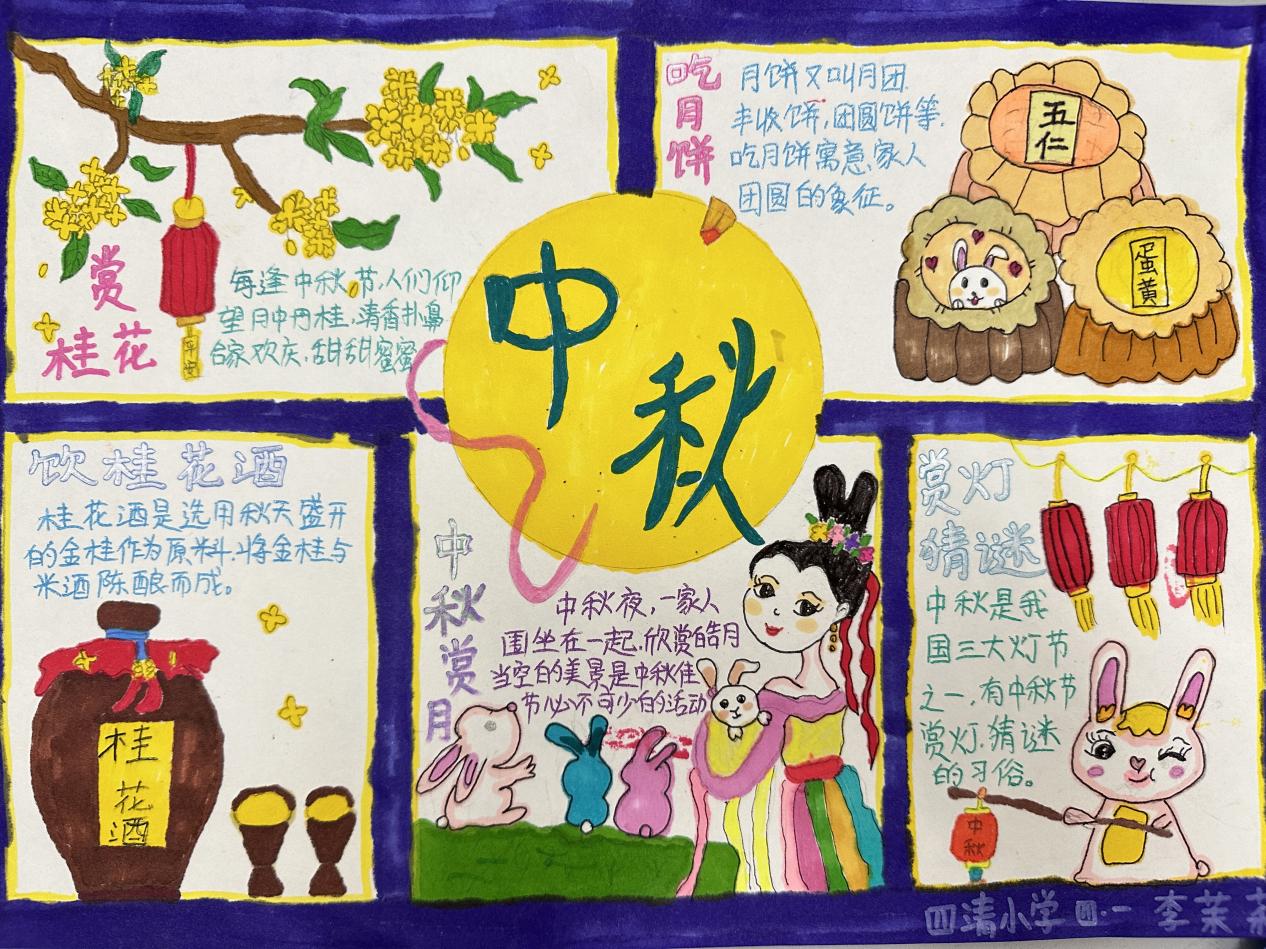 中秋
赏
桂花
平安
每逢中秋节,人们仰
望月中丹桂,清香扑鼻
合家欢庆,甜甜蜜蜜
吃月饼
月饼又叫月团,
丰收饼,团圆饼等.
吃月饼寓意家人
团圆的象征。
五仁
蛋黄
饮桂花酒
桂花酒是选用秋天盛开
的金桂作为原料.将金桂与
米酒陈酿而成。
桂花酒
中秋赏月
中秋夜,一家人
围坐在一起.欣赏皓月
当空的美景是中秋佳
节必不可少的活动
赏灯
猜谜
中秋是我
国三大灯节
之一,有中秋节
赏灯.猜谜
的习俗。
中秋
四清小学 四·一 李茉